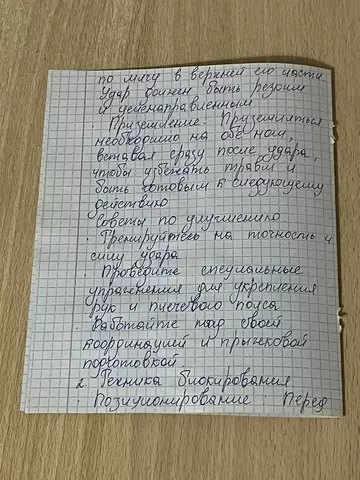 по мячу в верхней его части.
Удар должен быть резким
и целенаправленным
· Приземление: Приземляться
необходимо на обе ноги,
вставая сразу после удара,
чтобы избежать травм и
быть готовым к следующему
действию
Советы по улучшению
· Тренируйтесь на точность и
силу удара
· Проведите специальные
упражнения для укрепления
рук и плечевого пояса
· Работайте над своей
координацией и прыжковой
подготовкой
2. Техника блокирования
· Позиционирование: Перед